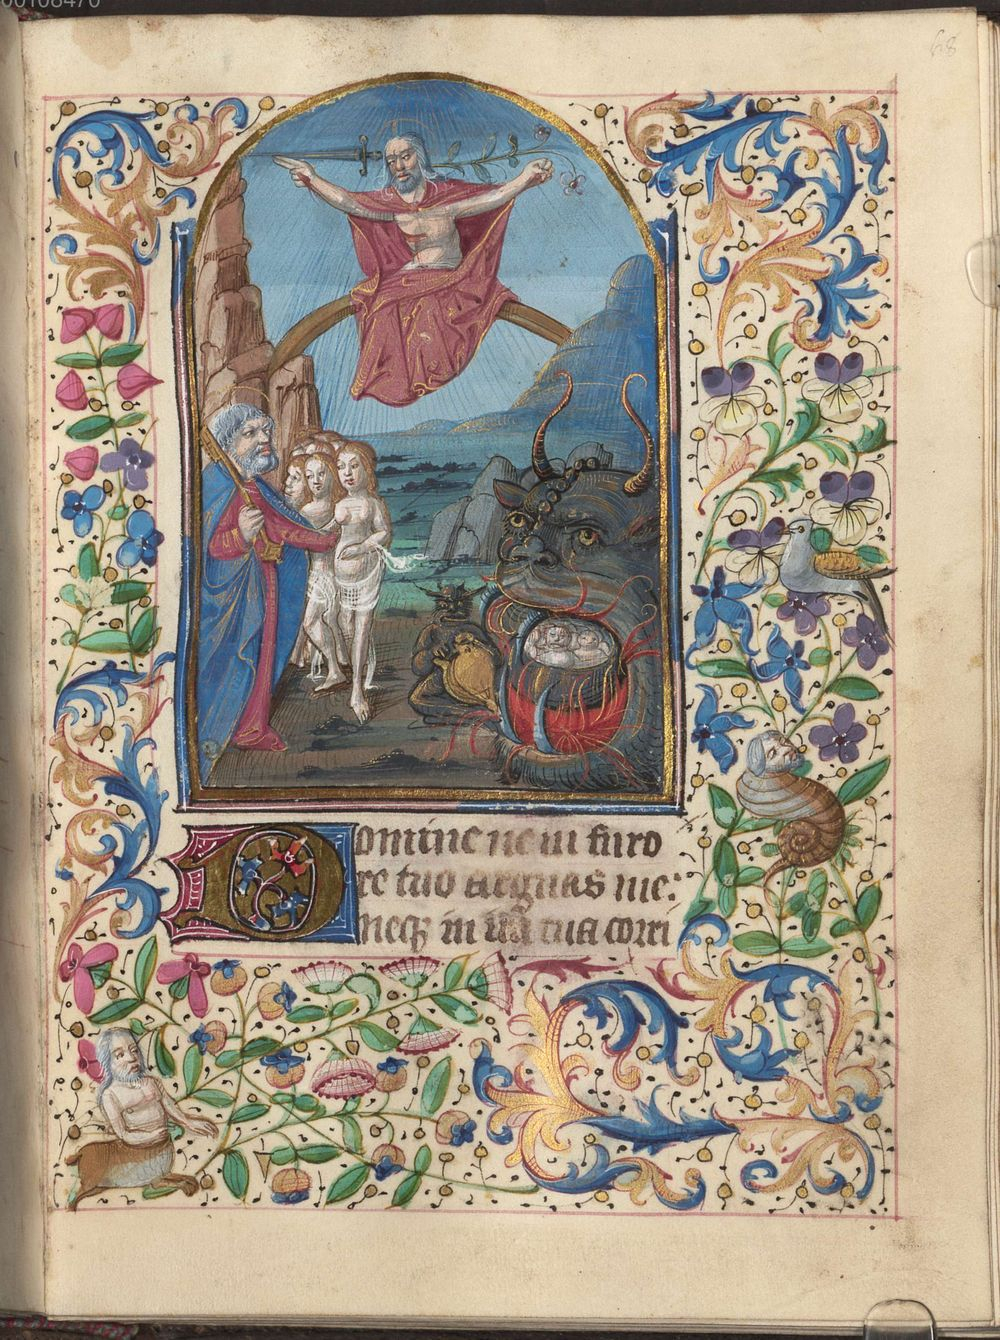 00108470
68
Domine ne in furo
re tuo arguas me:
neqʒ in ira tua corri